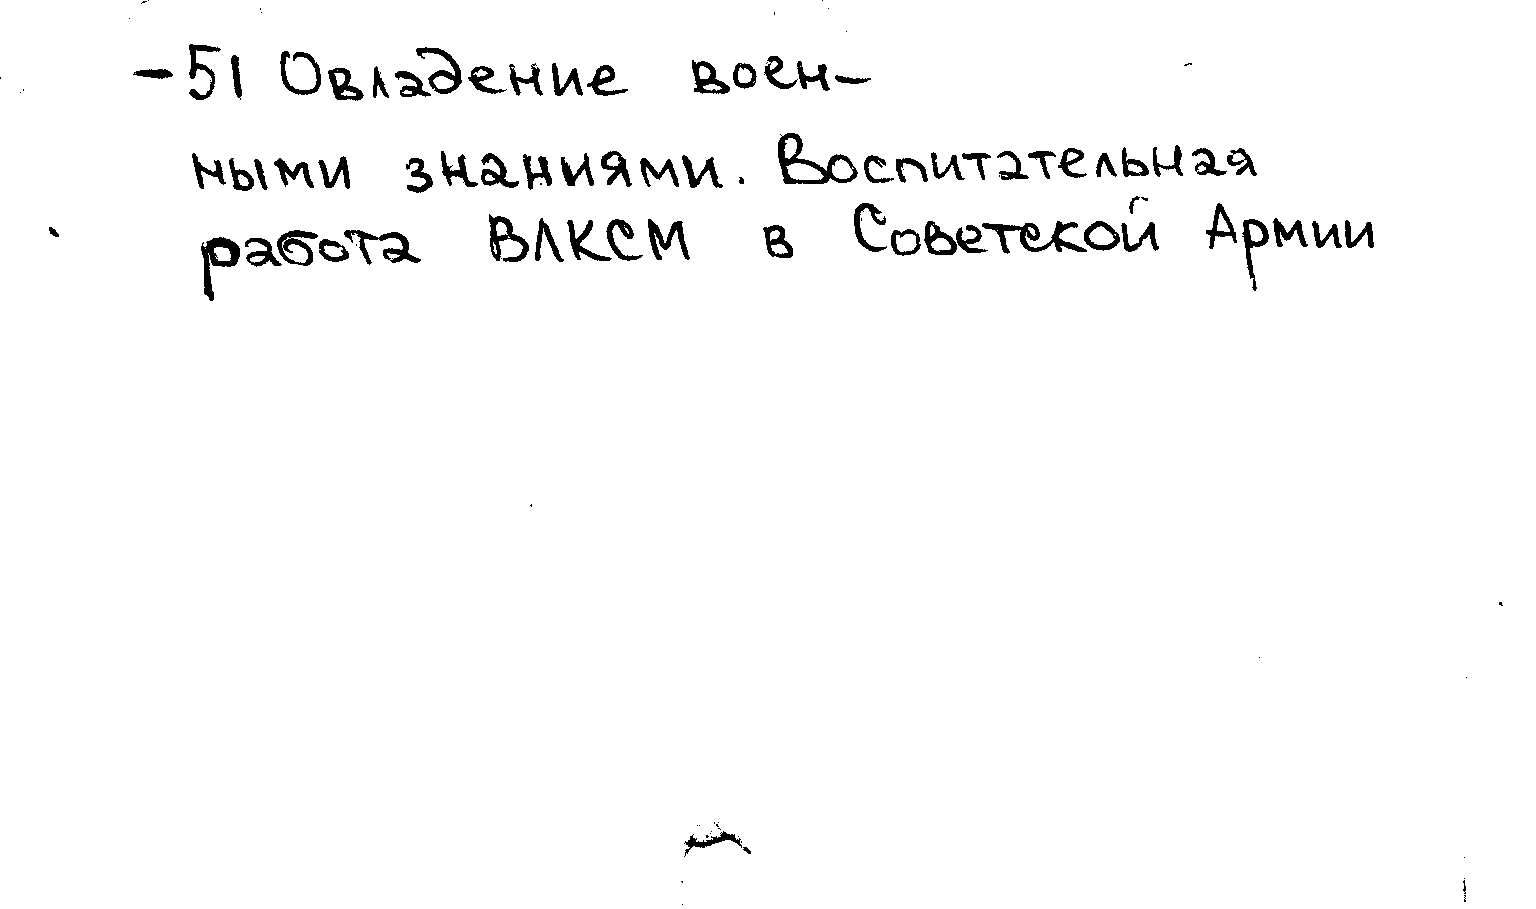 -51 Овладение воен-
ными знаниями. Воспитательная
работа ВЛКСМ в Советской Армии